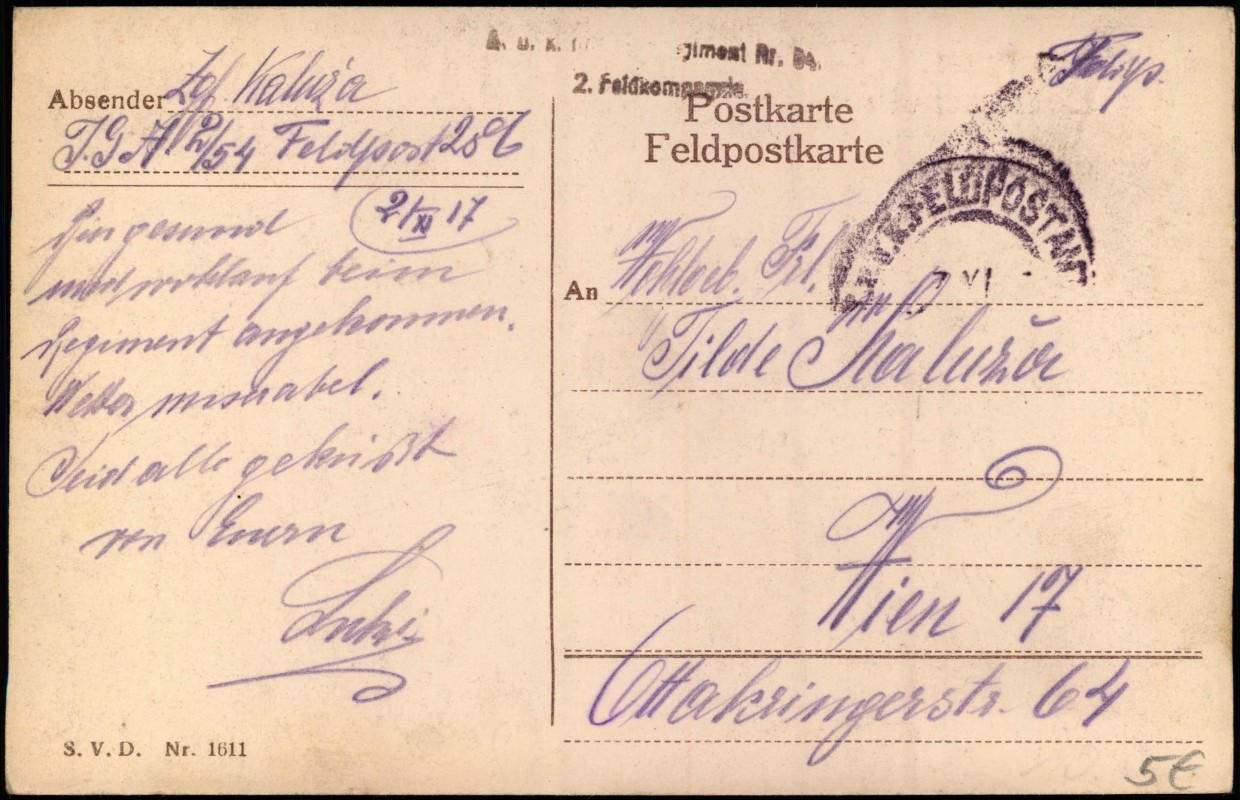 Absender Zgf. Kaluža
I.G.A. 2/54 Feldpost 286
2/XI 17
Bin gesund
und wohlauf beim
Regiment angekommen.
Wetter miserabel.
Seid alle geküßt
von Euern
giment Nr. 54.
2. Feldkompagnie
Postkarte
Feldpostkarte
Feldp.
K.u.K. FELDPOSTAMT
XI
An Wohlgeb. Frl.
Tilde Kaluža
in
Wien 17
Ottakringerstr. 64
S. V. D. Nr. 1611
5€